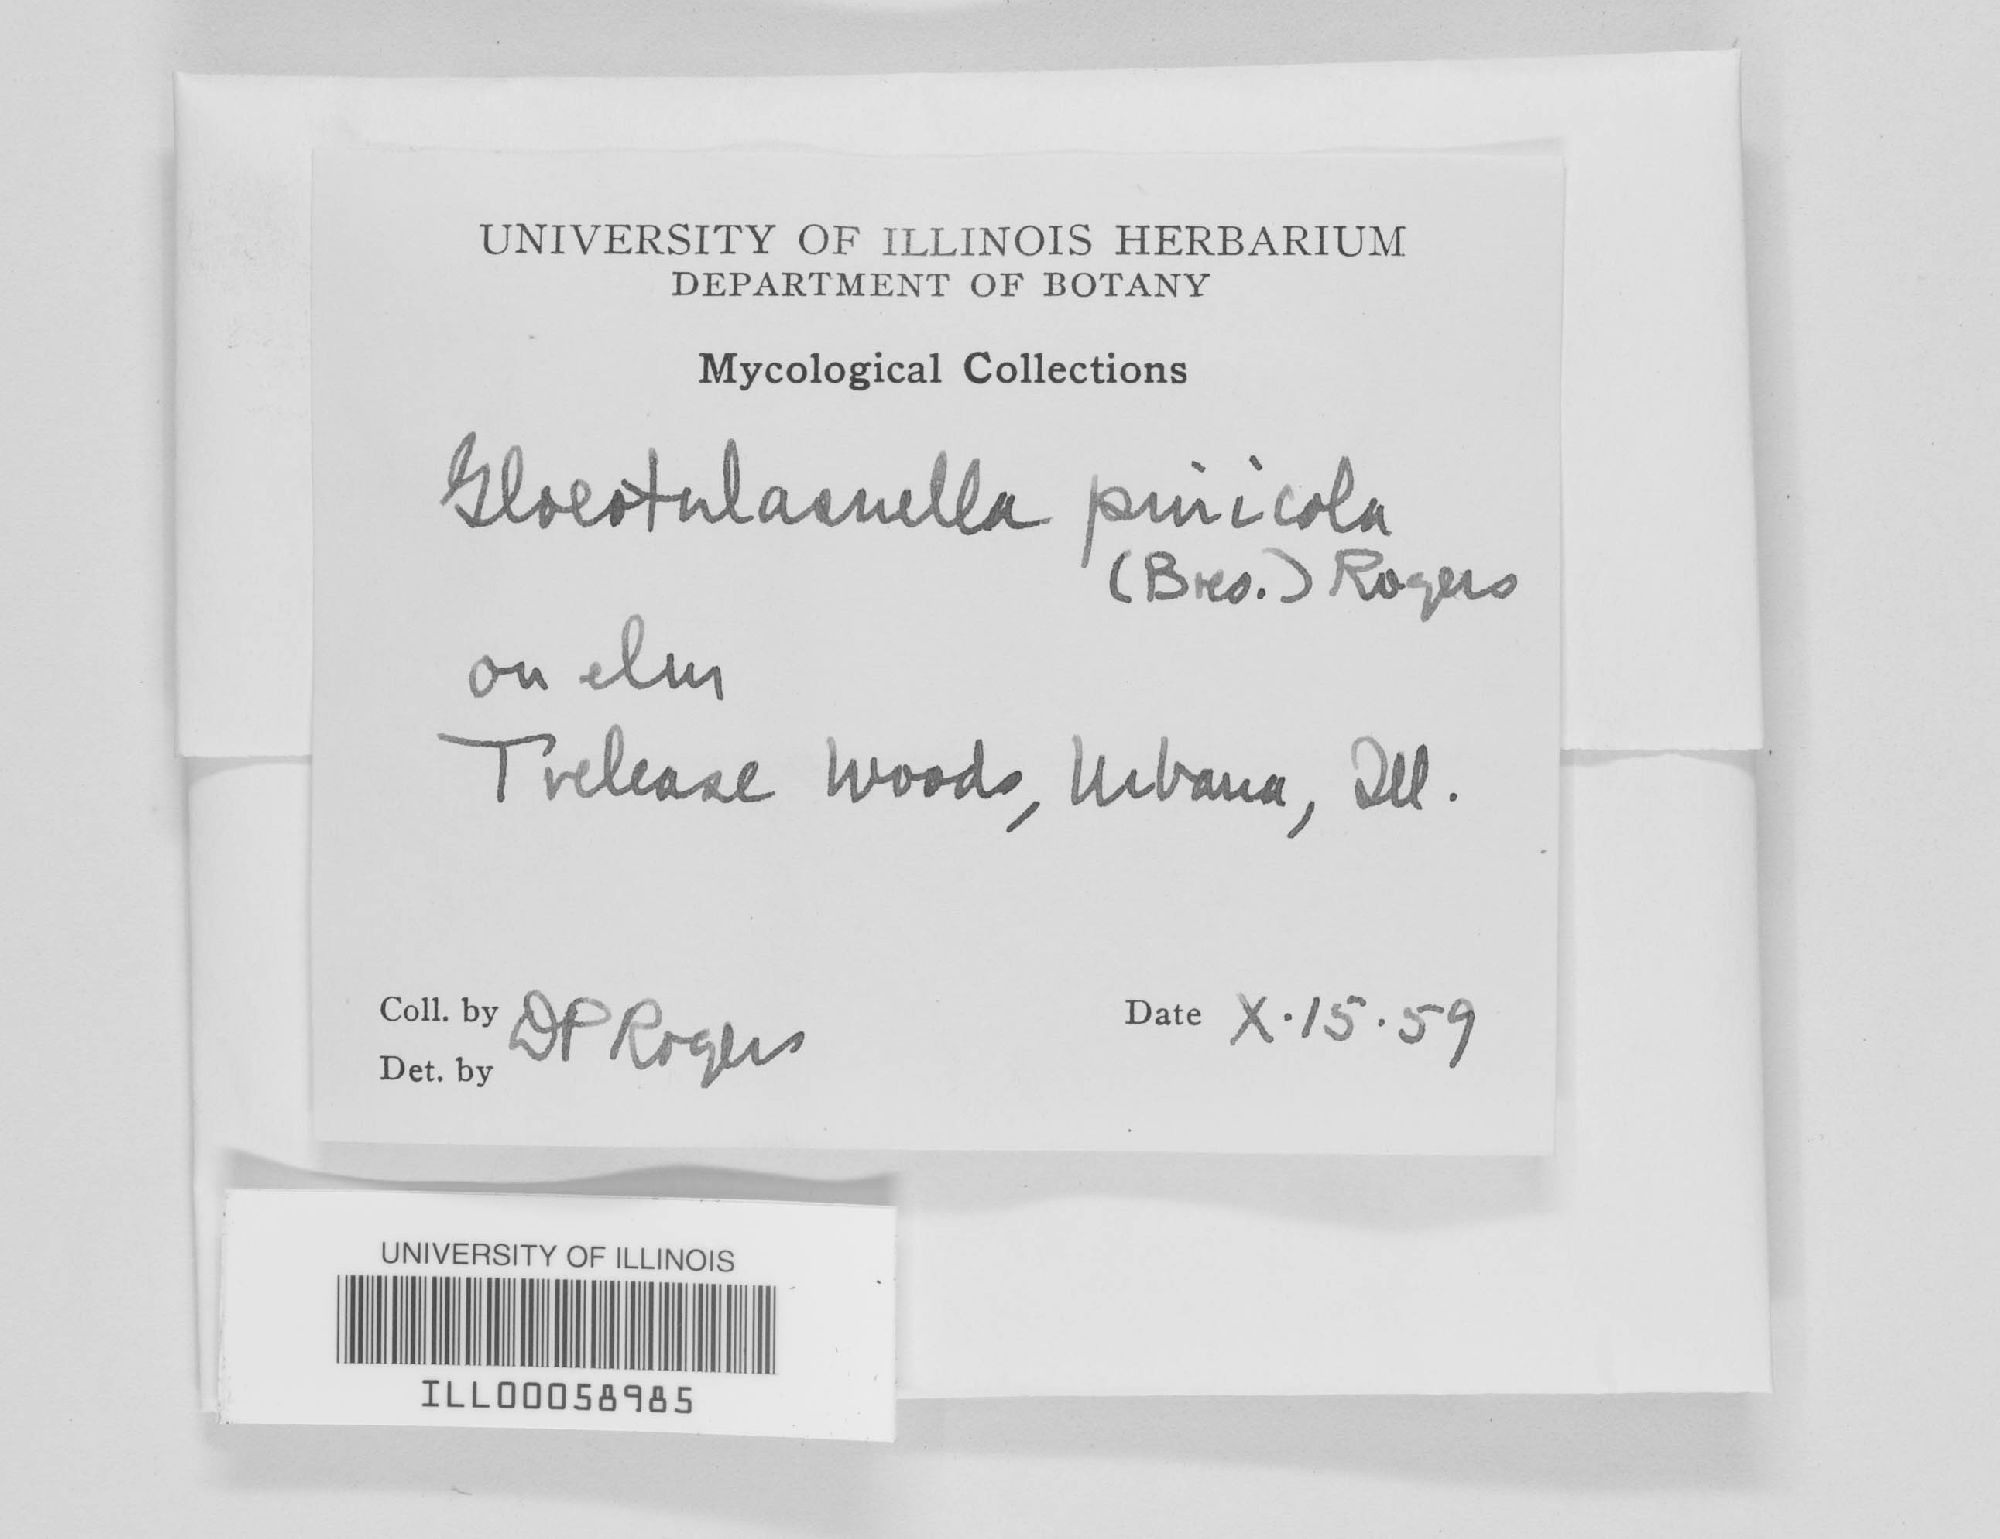 UNIVERSITY OF ILLINOIS HERBARIUM
DEPARTMENT OF BOTANY
Mycological Collections
Gloeotulasnella pinicola
(Bres.) Rogers
on elm
Trelease Woods, Urbana, Ill.
Coll. by DP Rogers Date X·15·59
Det. by
UNIVERSITY OF ILLINOIS
ILL00058985